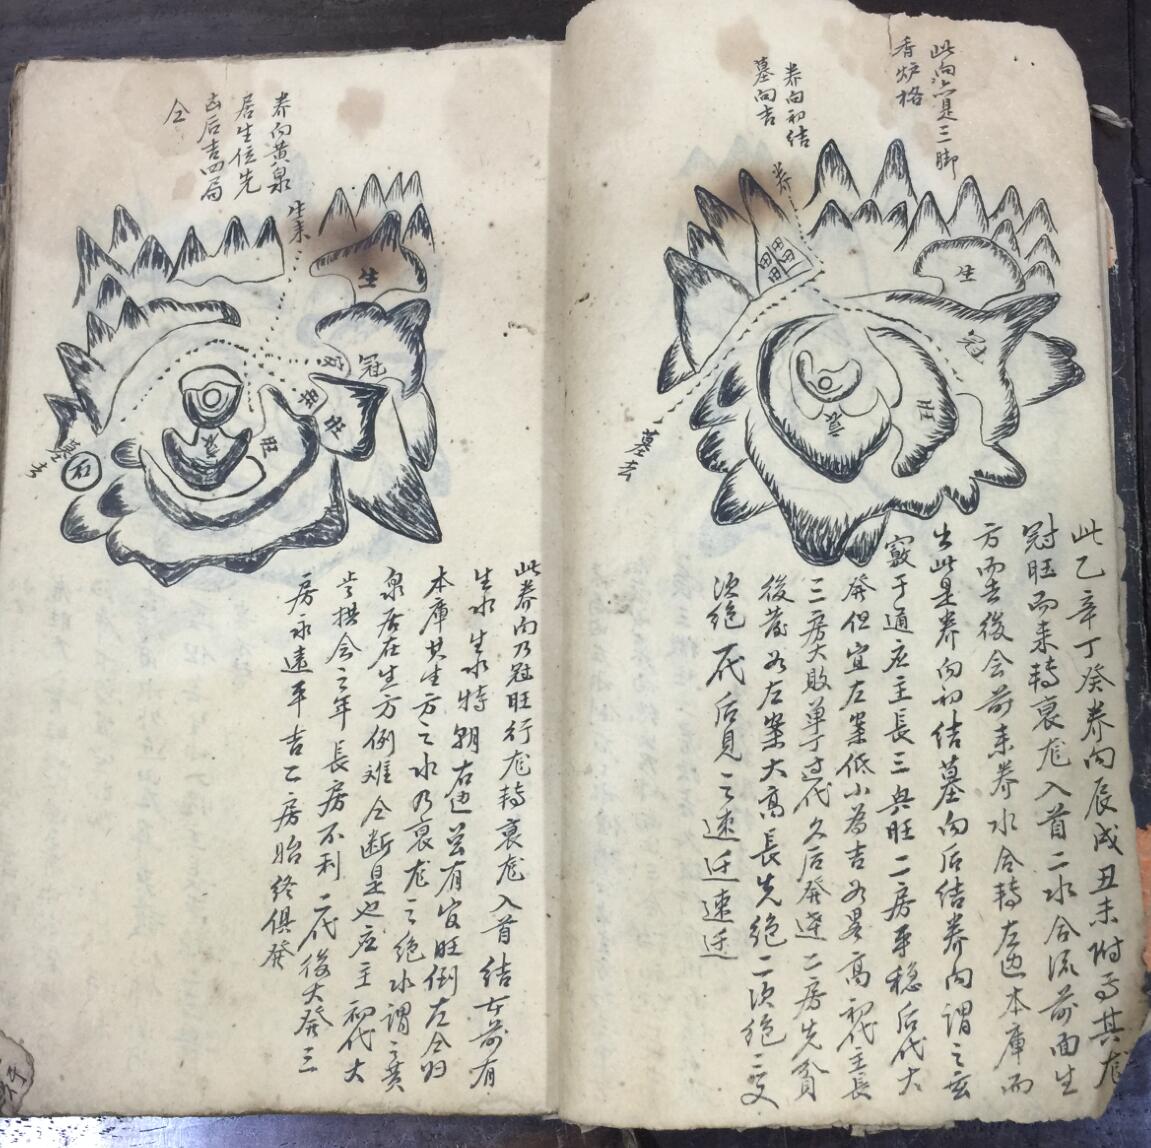 此向亦是三脚
香炉格
养向初结
墓向吉
养
田田
田田
生
冠
旺
衰
墓去
此乙辛丁癸养向辰戌丑未附焉其龙
冠旺而来转衰龙入首二水合流前面生
方而去後会前来养水合转左边本库而
出此是养向初结墓向后结养向谓之玄
竅于通应主長三典旺二房平稳后代大
発但宜左案低小為吉如是高初代主長
三房大敗单丁过代久后発達二房先貧
後發如左案大高長先绝二次绝三又
次绝一代后見之速迁速迁
养向黄泉
居生位先
凶后吉四局
仝
生来
生
官
冠
旺
衰
石
墓去
此养向乃冠旺行龙轉衰龙入首结穴前有
生水生水特朝右边並有官旺倒左合归
本庫其生方之水乃衰龙之绝水謂之黄
泉居在生方例难仝断是也应主初代大
房永遠平吉二房始终俱発